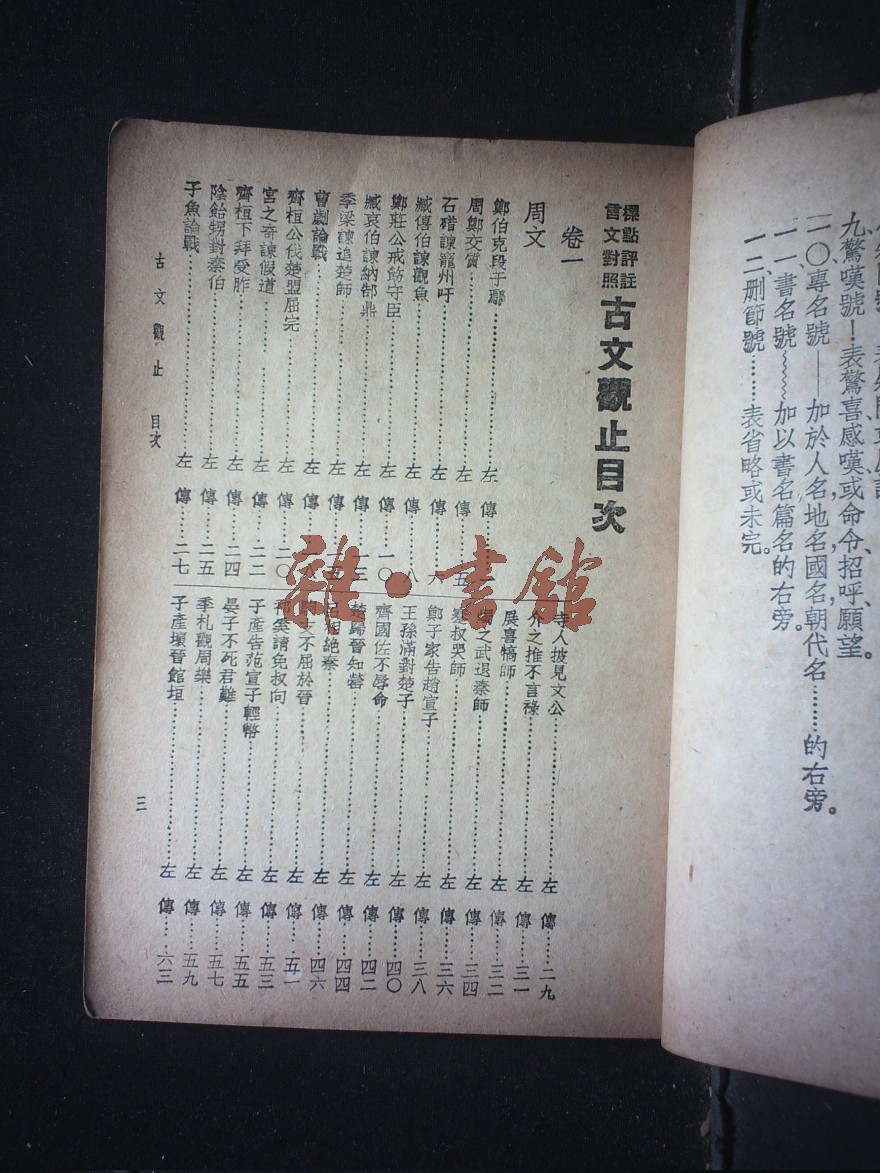 九、驚嘆號！表驚喜感嘆或命令、招呼、願望。
一〇、專名號——加於人名地名國名朝代名………的右旁。
一一、書名號﹏﹏加以書名篇名的右旁。
一二、刪節號……表省略或未完。
標點評註
言文對照
古文觀止目次
卷一
周文
鄭伯克段于鄢……左傳……一
周鄭交質……左傳……五
石碏諫寵州吁……左傳……六
臧僖伯諫觀魚……左傳……八
鄭莊公戒飭守臣……左傳……一〇
臧哀伯諫納郜鼎……左傳……一三
季梁諫追楚師……左傳……一五
曹劌論戰……左傳……一八
齊桓公伐楚盟屈完……左傳……二〇
宮之奇諫假道……左傳……二二
齊桓下拜受胙……左傳……二四
陰飴甥對秦伯……左傳……二五
子魚論戰……左傳……二七
寺人披見文公……左傳……二九
介之推不言祿……左傳……三一
展喜犒師……左傳……三二
燭之武退秦師……左傳……三四
蹇叔哭師……左傳……三六
鄭子家告趙宣子……左傳……三八
王孫滿對楚子……左傳……四〇
齊國佐不辱命……左傳……四二
楚歸晉知罃……左傳……四四
呂相絕秦……左傳……四六
駒支不屈於晉……左傳……五一
祁奚請免叔向……左傳……五三
子產告范宣子輕幣……左傳……五五
晏子不死君難……左傳……五七
季札觀周樂……左傳……五九
子產壞晉館垣……左傳……六三
古文觀止 目次
三
雜·書館